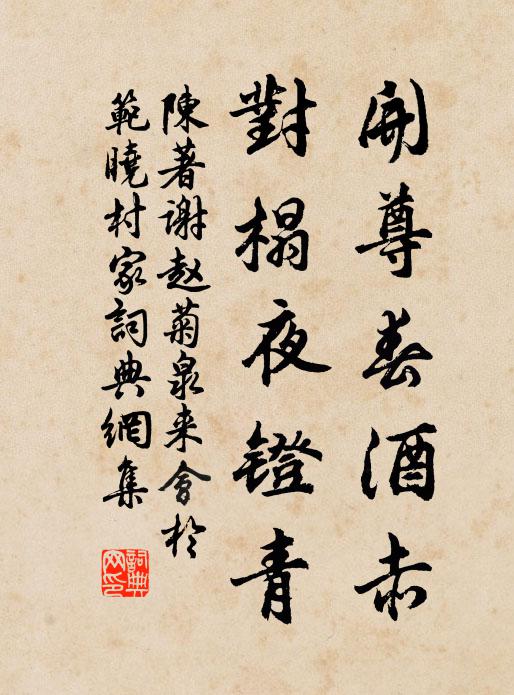 開尊春酒赤
對榻夜鐙青
陳著谢赵菊泉来會於
範曉村家詞典網集
詞典网印